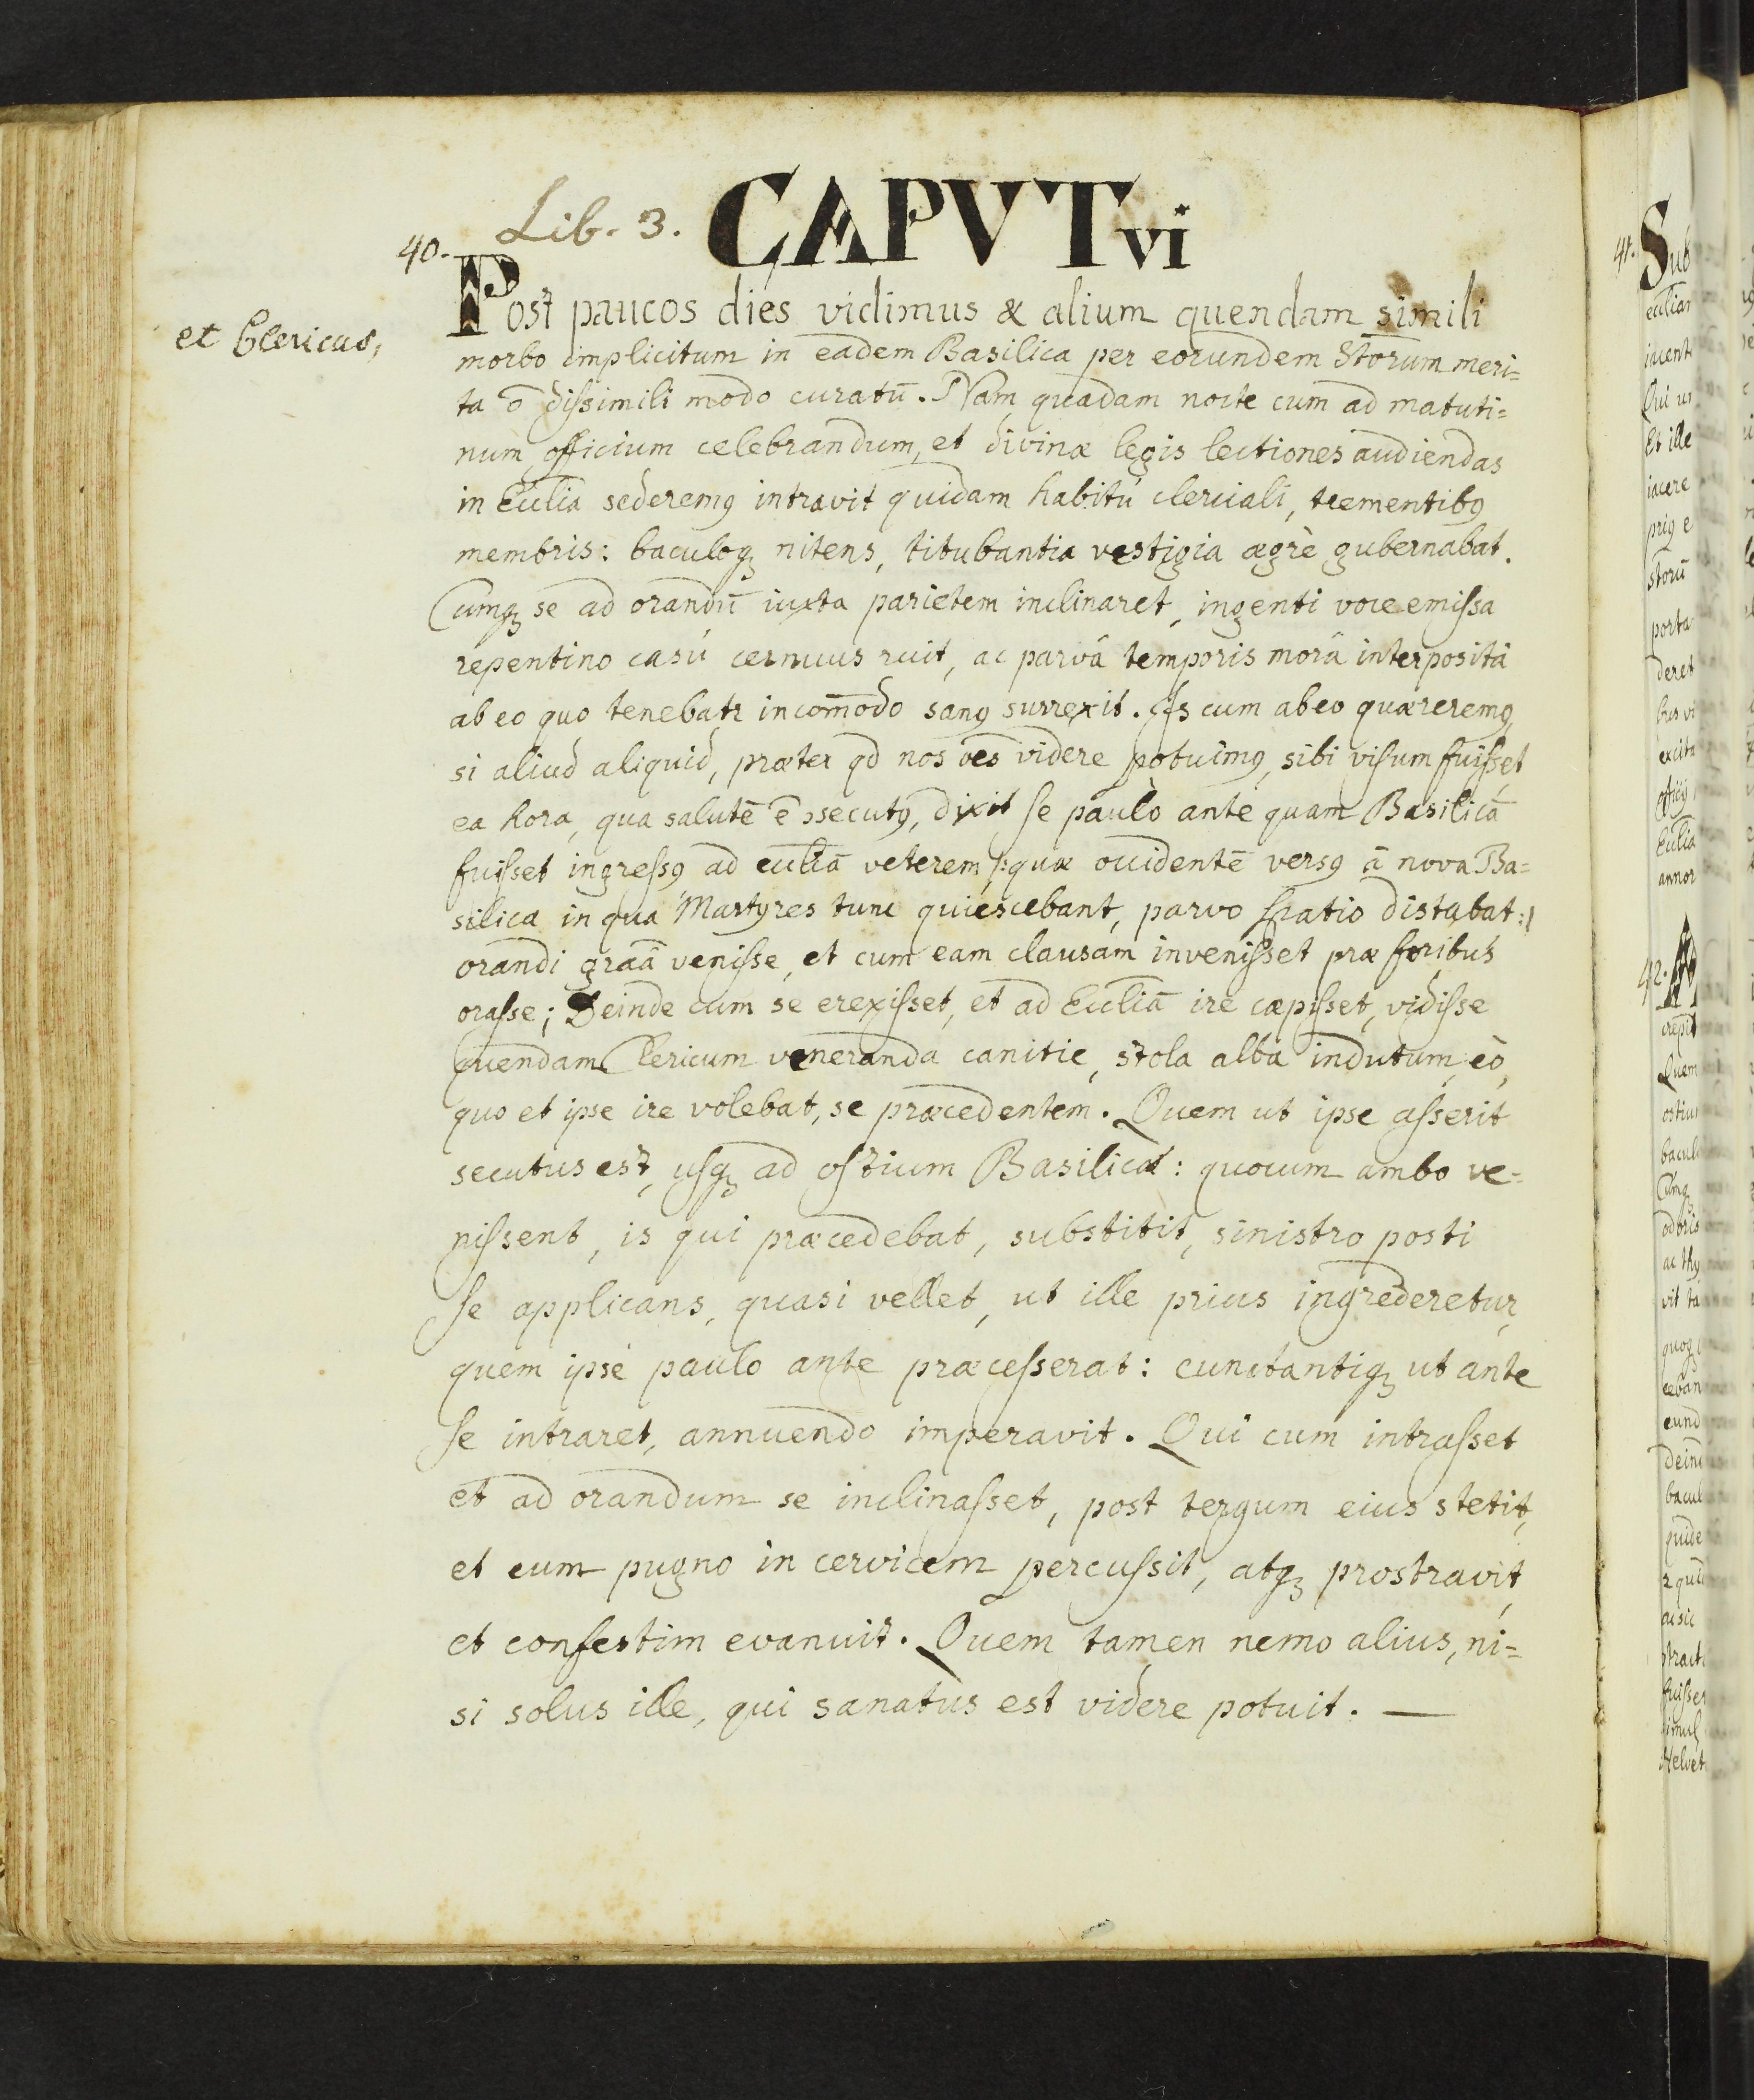 Lib. 3. CAPVT vi
40.
et Clericus,
Post paucos dies vidimus & alium quendam simili
morbo implicitum in eadem Basilica per eorundem Storum meri=
ta õ dissimili modo curatũ. Nam quadam nocte cum ad matuti=
num officium celebrandum, et divinæ legis lectiones audiendas
in Ecclia sederemꝰ intravit quidam habitu clericali, trementibꝰ
membris: baculoqꝫ nitens, titubantia vestigia ægrè gubernabat.
Cumqꝫ se ad orandũ iuxta parietem inclinaret, ingenti voce emissa
repentino casu cernuus ruit, ac parvâ temporis morâ interpositâ
ab eo quo tenebatr incom̃odo sanꝰ surrexit. Is cum ab eo quæreremꝰ
si aliud aliquid, præter qd nos oes videre potuimꝰ, sibi visum fuisset
ea hora, qua salutẽ ẽ ↄsecutꝰ, dixit se paulò ante quam Basilicã
fuisset ingressꝰ ad eccliã veterem /:quæ occidentẽ versꝰ â nova Ba=
silica in qua Martyres tunc quiescebant, parvo spatio distabat:/
orandi graã venisse, et cum eam clausam invenisset præ foribus
orasse; Deinde cum se erexisset, et ad Eccliã ire cæpisset, vidisse
quendam Clericum veneranda canitie, stola alba indutum eò,
quo et ipse ire volebat, se præcedentem. Quem ut ipse asserit
secutus est, usqꝫ ad ostium Basilicæ: quocum ambo ve=
nissent, is qui præcedebat, substitit, sinistro posti
se applicans, quasi vellet, ut ille prius ingrederetur,
quem ipse paulo ante præcesserat: cunctantiqꝫ ut ante
se intraret, annuendo imperavit. Qui cum intrasset
et ad orandum se inclinasset, post tergum eius stetit,
et eum pugno in cervicem percussit, atqꝫ prostravit,
et confestim evanuit. Quem tamen nemo alius, ni=
si solus ille, qui sanatus est videre potuit. —